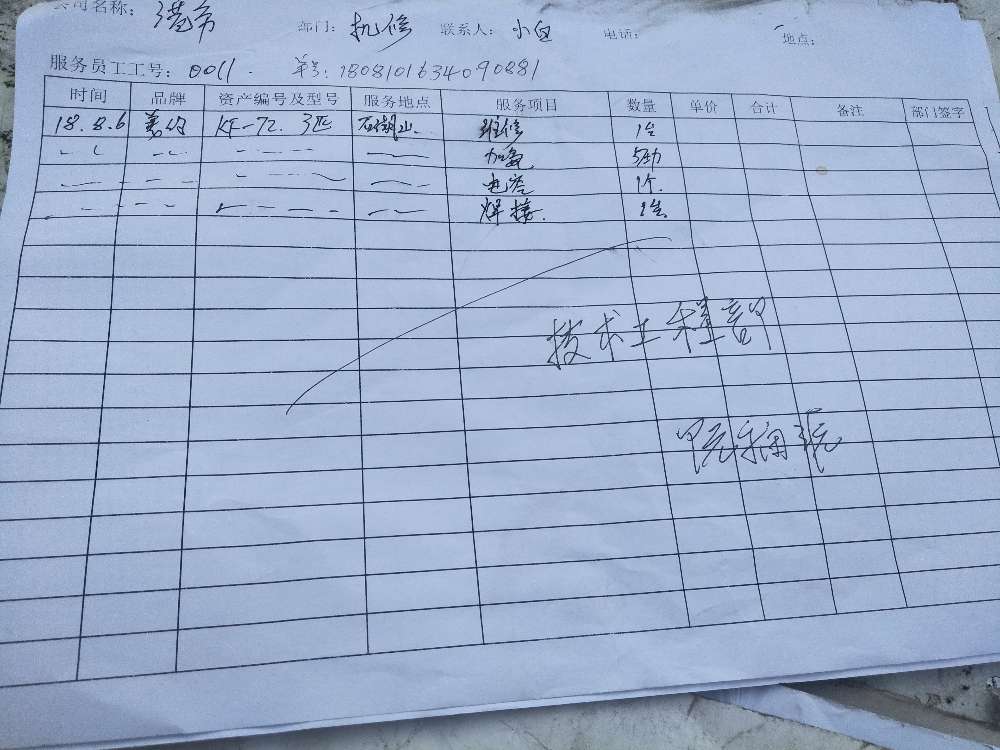 公司名称: 港务 部门: 机修 联系人: 小白 电话: 地点:
服务员工工号: 0011. 单号: 1808101634090881
时间 品牌 资产编号及型号 服务地点 服务项目 数量 单价 合计 备注 部门签字
18.8.6 美的 KF-72. 3匹 山. 维修 1台
加氟 5功
电容 1个.
焊接. 1台
技术工程部